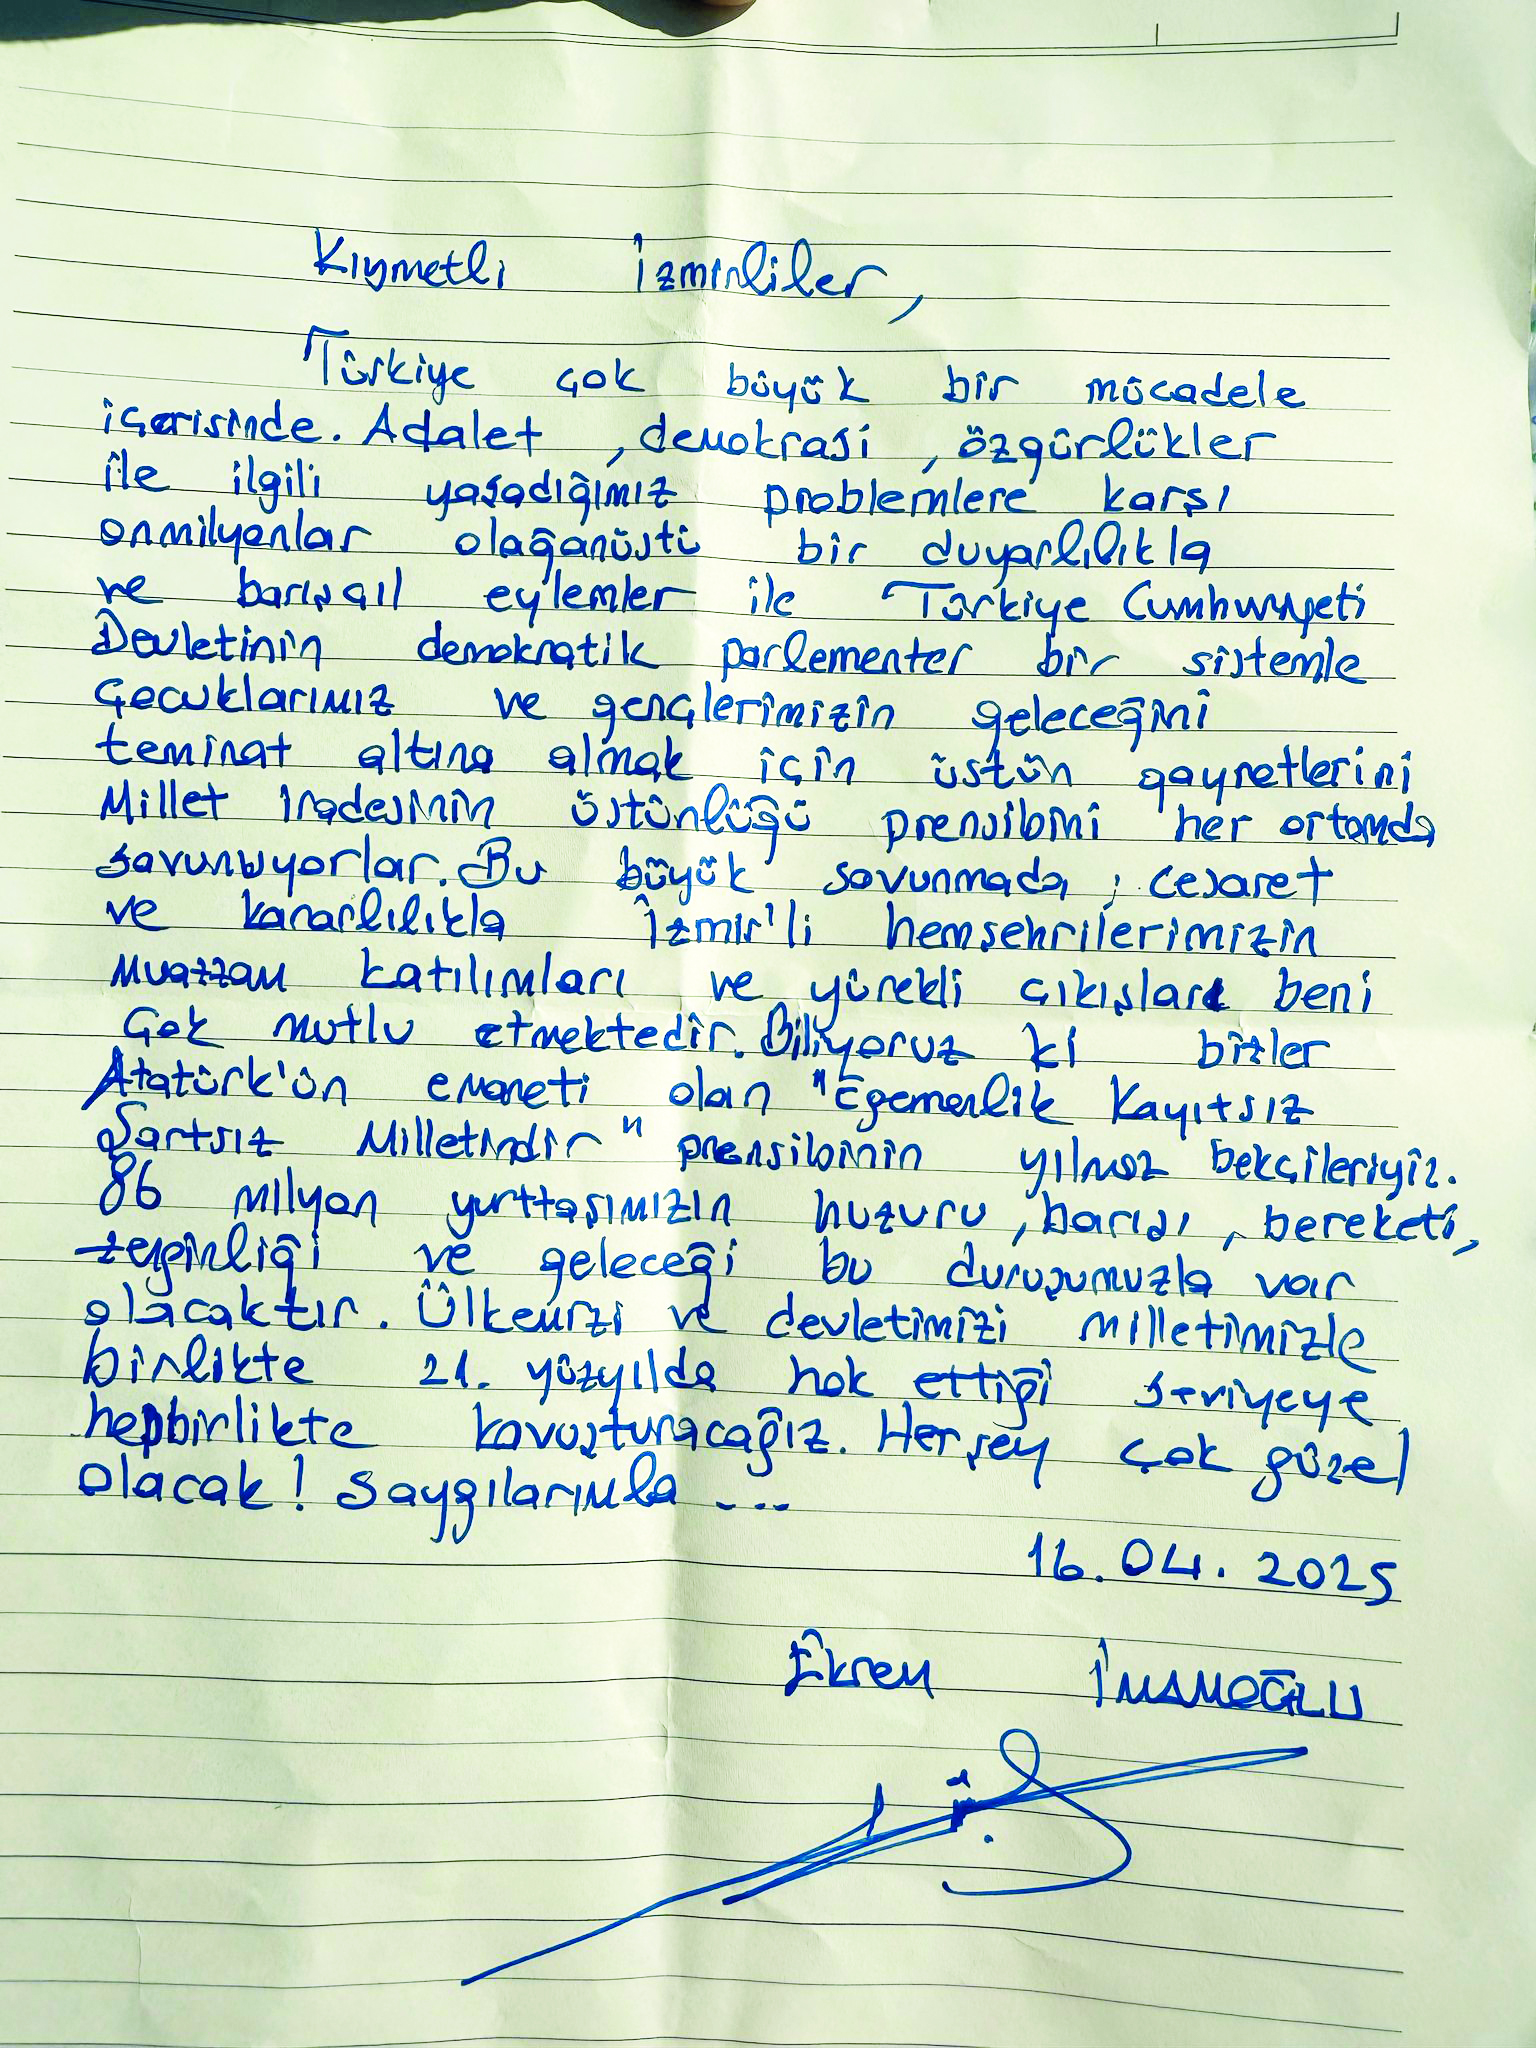 Kıymetli İzmirliler,
Türkiye çok büyük bir mücadele
içerisinde. Adalet, demokrasi, özgürlükler
ile ilgili yaşadığımız problemlere karşı
onmilyonlar olağanüstü bir duyarlılıkla
ve barışçıl eylemler ile Türkiye Cumhuriyeti
Devletinin demokratik parlementer bir sistemle
çocuklarımız ve gençlerimizin geleceğini
teminat altına almak için üstün gayretlerini
Millet iradesinin üstünlüğü prensibini her ortamda
savunuyorlar. Bu büyük savunmada, cesaret
ve kararlılıkla İzmir'li hemşehrilerimizin
muazzam katılımları ve yürekli çıkışları beni
çok mutlu etmektedir. Biliyoruz ki bizler
Atatürk'ün emaneti olan "Egemenlik Kayıtsız
Şartsız Milletindir" prensibinin yılmaz bekçileriyiz.
86 milyon yurttaşımızın huzuru, barışı, bereketi,
zenginliği ve geleceği bu duruşumuzla var
olacaktır. Ülkemizi ve devletimizi milletimizle
birlikte 21. yüzyılda hak ettiği seviyeye
hepbirlikte kavuşturacağız. Herşey çok güzel
olacak! Saygılarımla ...
16.04.2025
Ekrem İMAMOĞLU